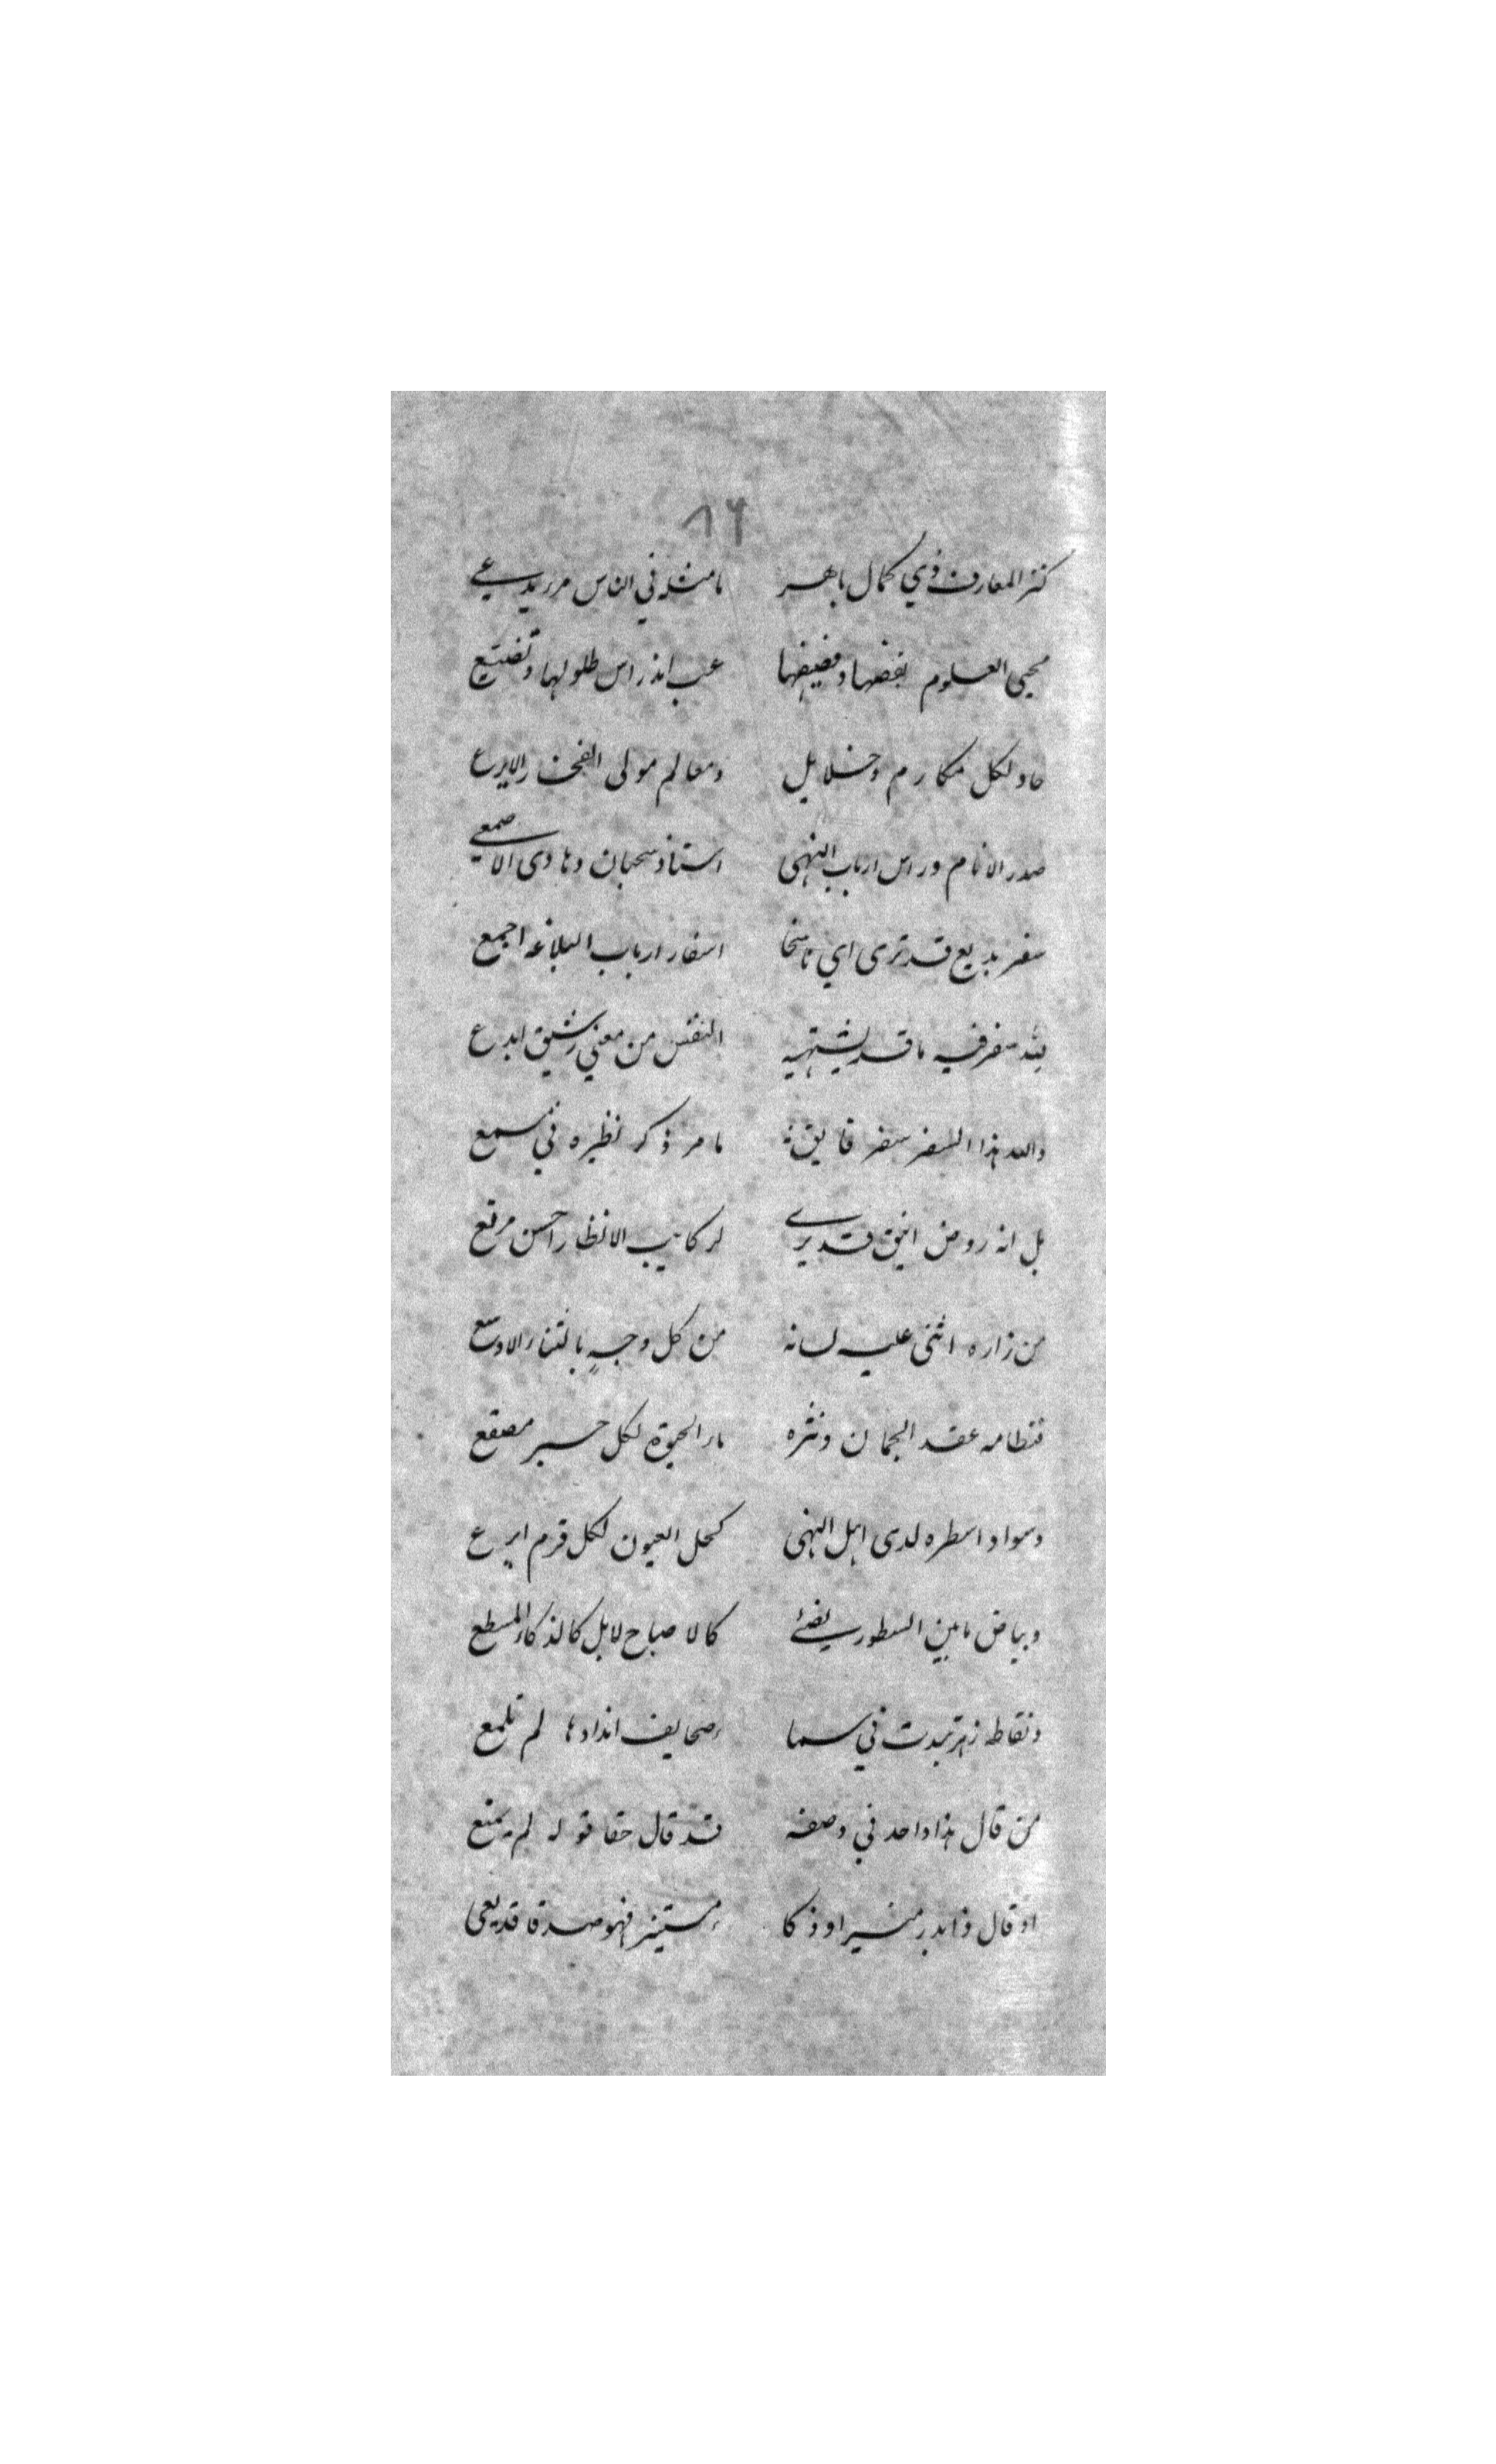 ٨٦
كنز المعارف ذي كمال باهر ما مثله في الناس من يدعي
محيي العلوم بفضها وفضيضها غب اندراس طلولها وتضيع
حاو لكل مكارم وخلايل ومعالم مولى الفخار الابرع
صدر الانام وراس ارباب النهى استاذ سحبان وهادى الاصمعي
سفر بديع قد ترى اي ناسخا اسفار ارباب البلاغه اجمع
لله سفر فيه ما قد يشتهيه النفس من معني رشيق ابدع
والله هذا السفر سفر فايق ما مر ذكر نظيره في مسمع
بل انه روض انيق قد يرى لركايب الانظار احسن مرتع
من زاره اثنى عليه لسانه من كل وجهٍ بالثناء الاوسع
فنظامه عقد الجمان ونثره ماء الحيوة لكل حبر مصقع
وسواد اسطره لدى اهل النهى كحل العيون لكل قرم ابرع
وبياض مابين السطور يضئ كالاصباح لابل كالذكاء المسطع
ونقاطه زهر تبدت في سما ء صحايف اندادها لم تلمع
من قال هذا واحد في وصفه قد قال حقا قوله لم يمنع
او قال ذا بدر منير او ذكا ء مستنير فهو صدقا قد يعى